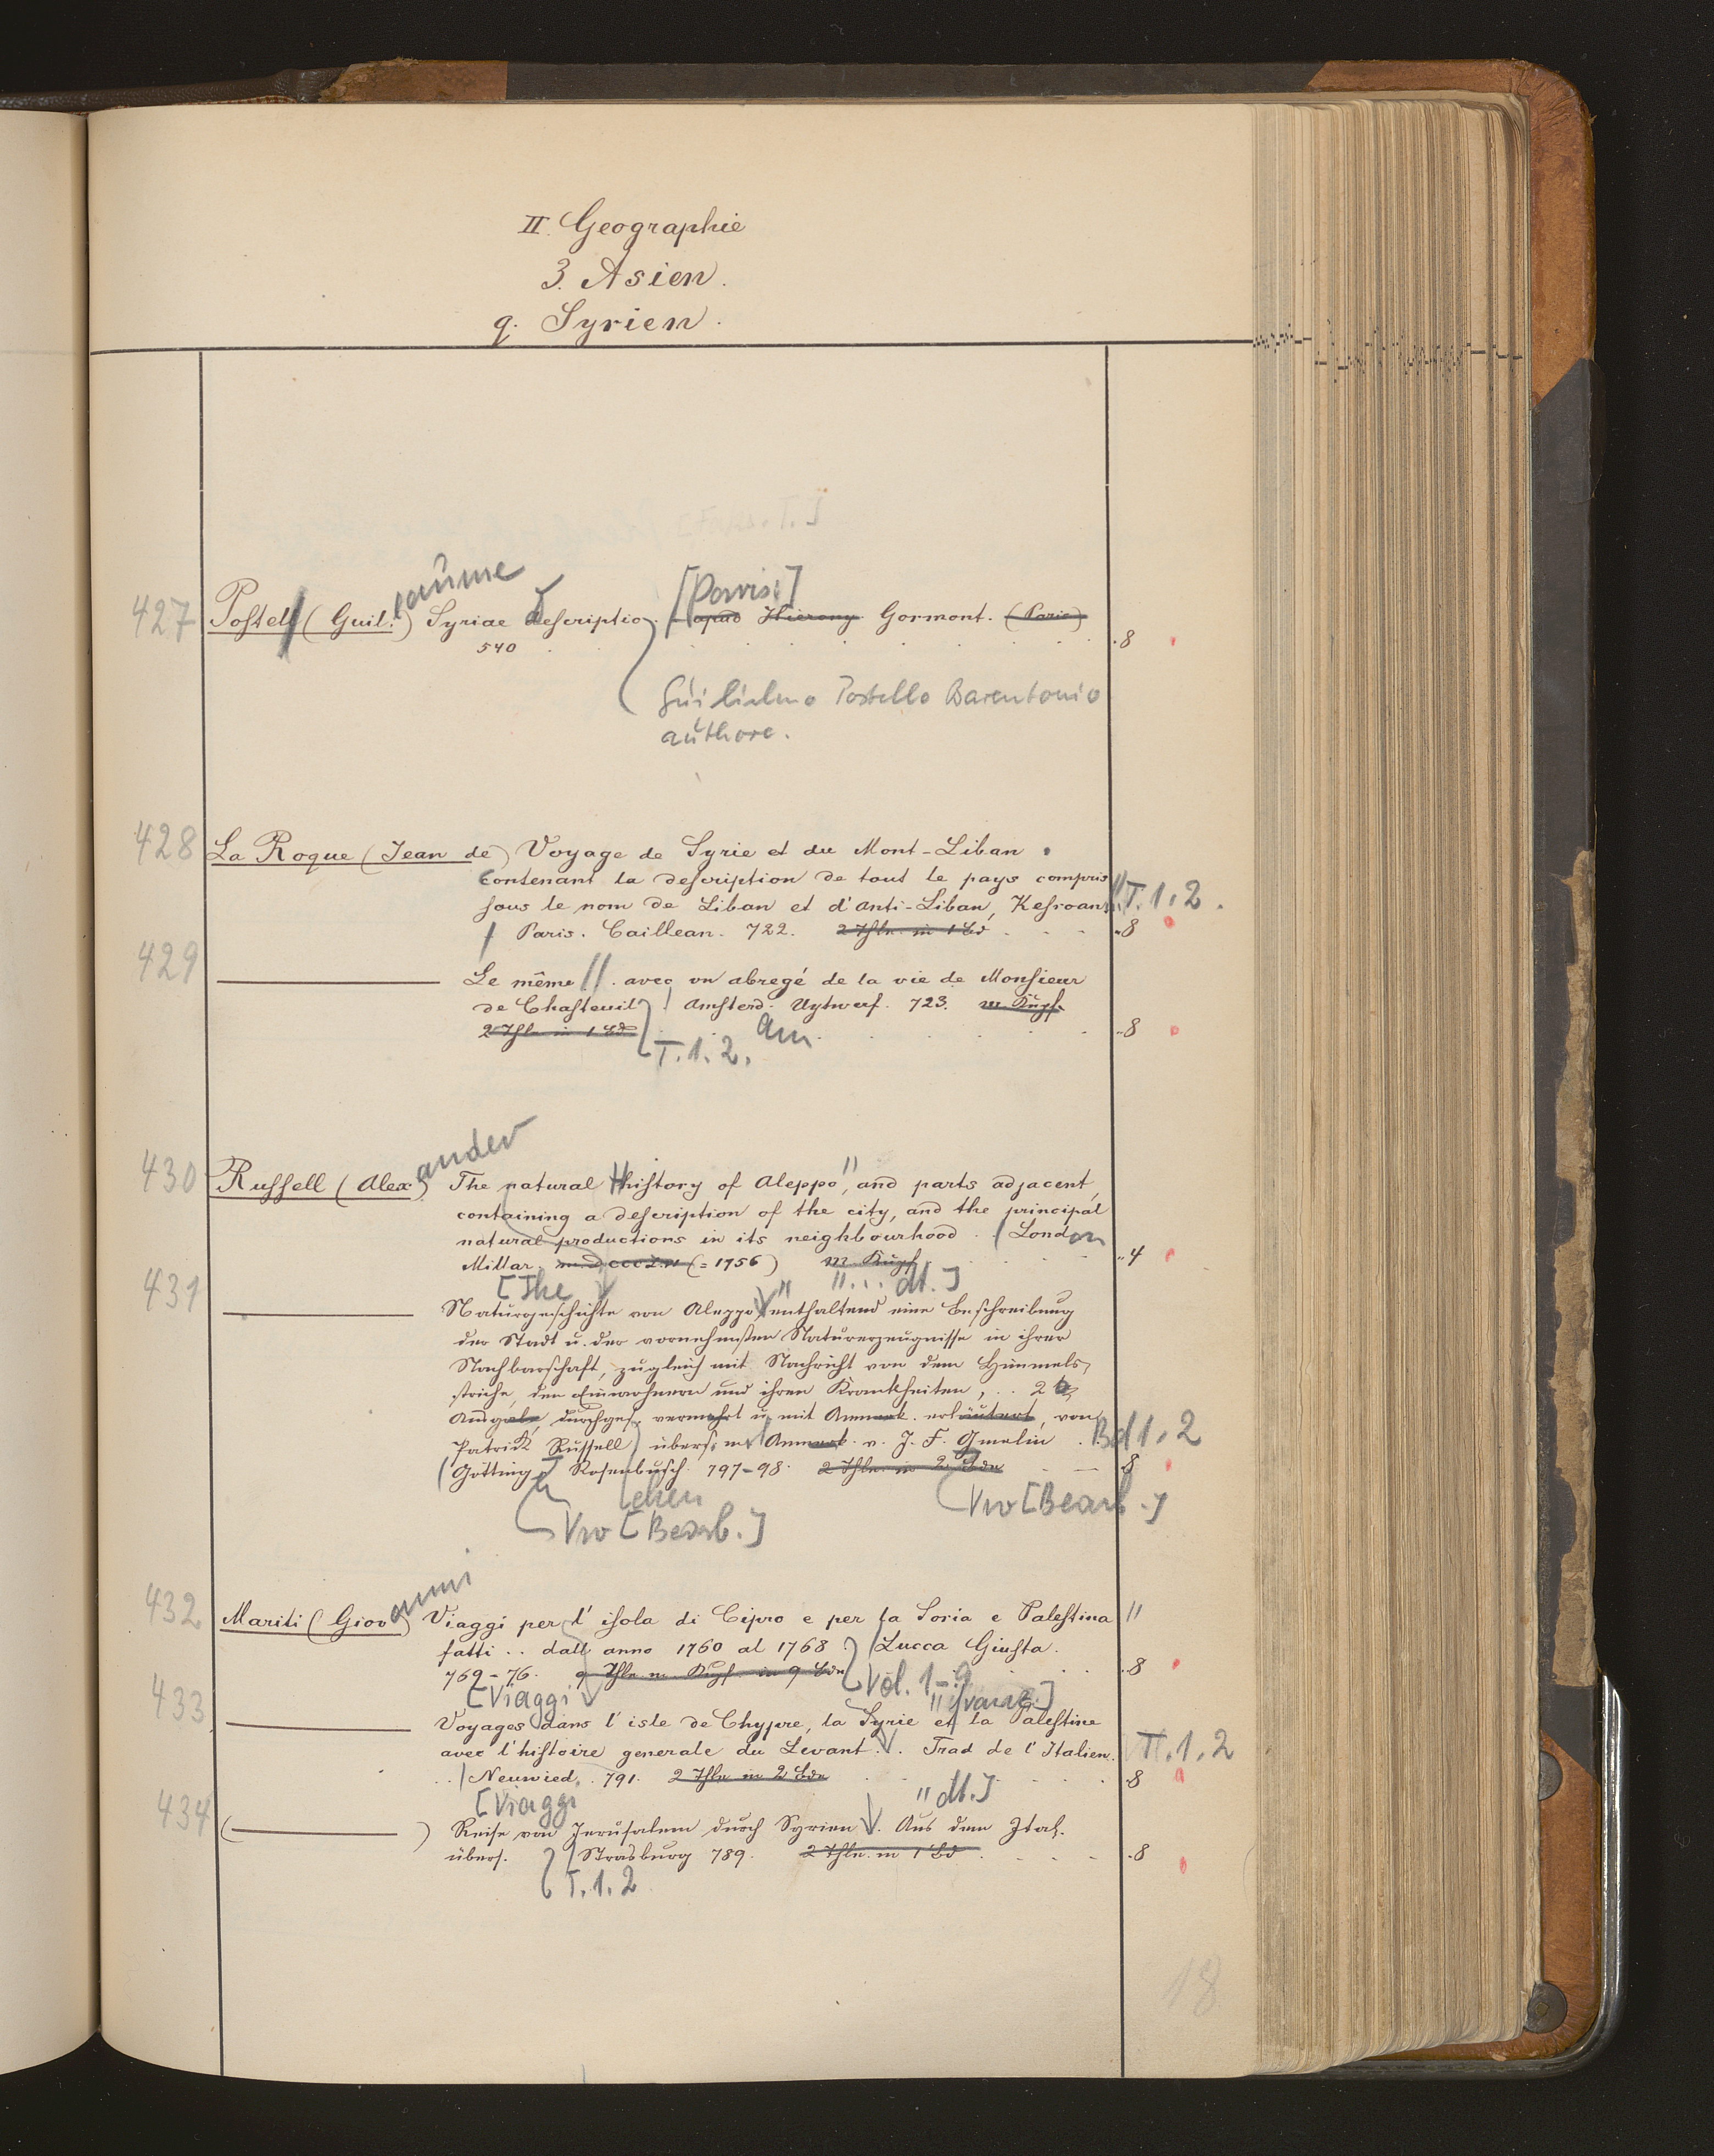 II. Geographie
3. Asien.
q. Syrien.
[Paris:]
427 Postell (Guil.laume) Syriae descriptio. apud Hierony Gormont. (Paris)
540 . 8
Guilielmo Postello Barentonio
authore.
428 La Roque (Jean de) Voyage de Syrie et du Mont-Liban.
Contenant la description de tout le pays compris
sous le nom de Liban et d'Anti-Liban, Kesroan // T. 1. 2.
/ Paris. Caillean. 722. 2 Thle. in 1 Bd . 8
429 ——— Le même //. avec un abregé de la vie de Monsieur
de Chasteuil / Amsterd. Uytwerf. 723. m. Kupf.
2 Thle in 1 Bd am 8
T. 1. 2.
430 Russell (Alexander) The natural History of Aleppo", and parts adjacent,
containing a description of the city, and the principal
natural productions in its neighbourhood. / London
Millar. (=1756) m. Kupf. 4
[The " ... dt.]
431 ——— Naturgeschichte von Aleppo " enthaltend eine Beschreibung
der Stadt u. der vornehmsten Naturerzeugnisse in ihrer
Nachbarschaft, zugleich mit Nachricht von dem Himmels-
striche, den Einwohnern und ihren Krankheiten, .. 2
Ausgabe, durchges, vermehrt u. mit Anmerk. erläutert, von
Patrick Russell) übers. m. Anmerk. v. J. F. Gmelin. Bd 1. 2
(Götting. Rosenbusch. 797-98. 2 Thle. in 2 Bdn — 8
chen
[Bearb.]
[Bearb.]
432 Mariti (Giovanni) Viaggi per l'isola di Cipro e per la Soria e Palestina "
fatti .. dall anno 1760 al 1768 / Lucca Giusta.
769-76. 9 Thle. m. Kupf. in 9 Bdn . 8
Vol. 1-9
[Viaggi " franz.]
433 ——— Voyages dans l'isle de Chypre, la Syrie et la Palestine
avec l'histoire generale du Levant. Trad de l'Italien. T. 1. 2
.. / Neuwied. 791. 2 Thle in 2 Bdn 8
[Viaggi " dt.]
434 (———) Reise von Jerusalem durch Syrien. Aus dem Ital.
übers. / Strasburg 789. 2 Thle. in 1 Bd . 8
T. 1. 2
18